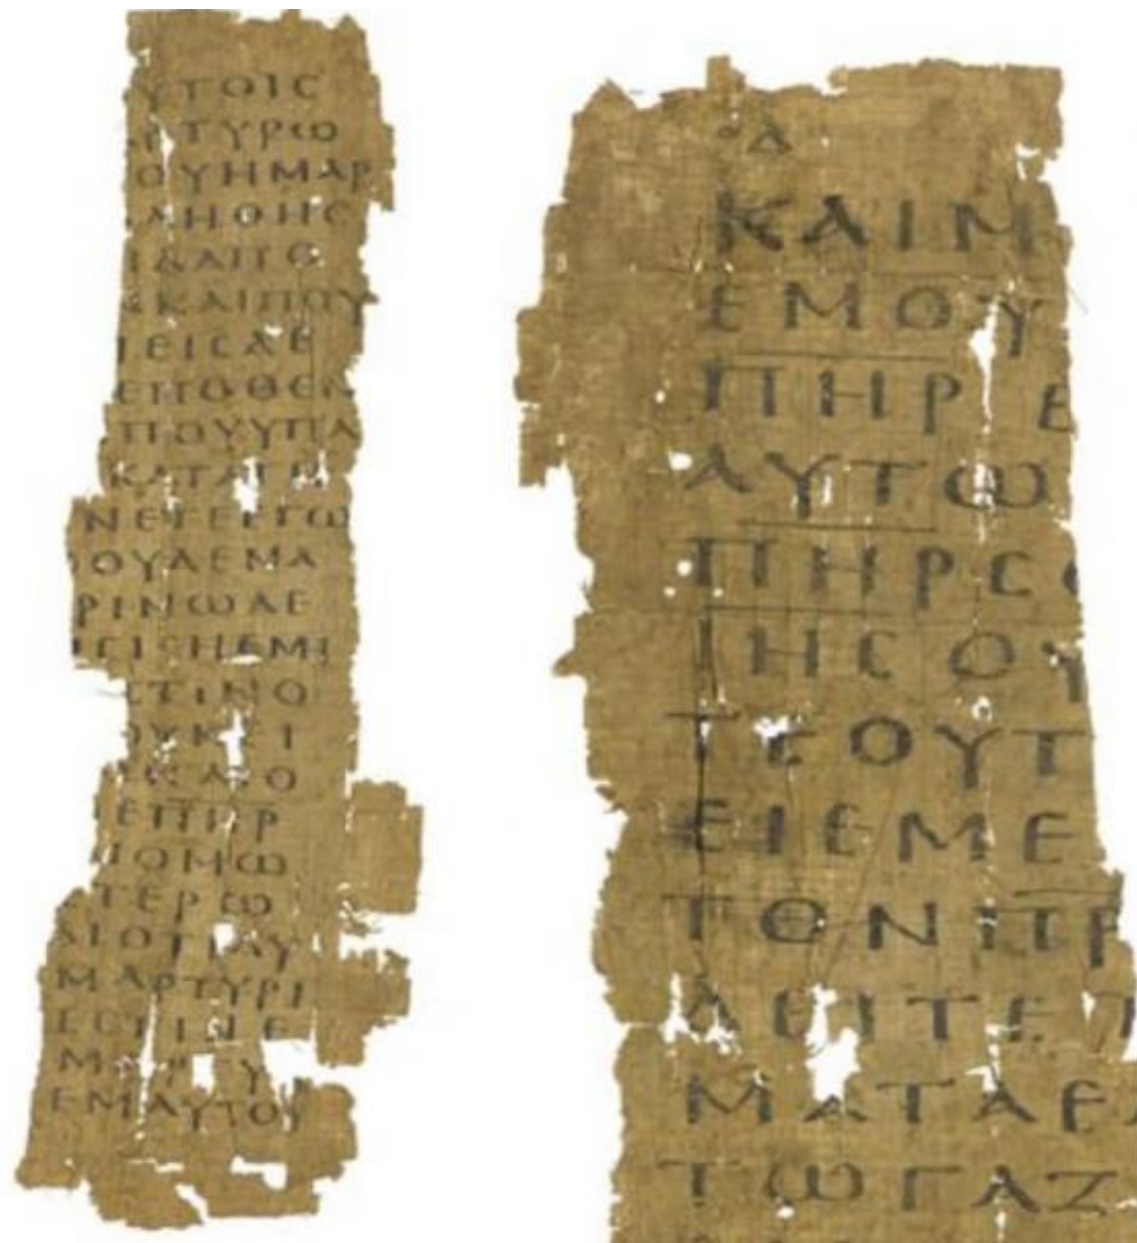 ΥΤΟΙϹ
ΡΤΥΡΩ
ΟΥΗΜΑΡ
ΑΗΘΗϹ
ΙΔΑΠΟ
ΚΑΙΠΟΥ
ΙΕΙϹΔΕ
ΕΠΟΘΕΝ
ΠΟΥΥΠΑ
ΚΑΤΑΤΗ
ΝΕΤΕΕΓΩ
ΟΥΔΕΝΑ
ΡΙΝΩΔΕ
ΡΙϹΙϹΗΕΜΗ
ϹΤΙΝΟ
ΟΥΚΕΙ
ΚΑΙΟ
ΕΠΗΡ
ΝΟΜΩ
ΤΕΡΩ
ΑΙΟΤΙΔΥ
ΜΑΡΤΥΡΙ
ΕϹΤΙΝΕ
ΜΑΡΤΥ
ΕΜΑΥΤΟΥ
ΟΔ
ΚΑΙΜ
ΕΜΟΥ
ΠΗΡ Ε
ΑΥΤΩ
ΠΗΡϹΟ
ΙΗϹΟΥ
ΤΕΟΥΤ
ΕΙΕΜΕ
ΤΟΝΠΡ
ΔΕΙΤΕΤ
ΜΑΤΑΕΛ
ΤΩΓΑΖ